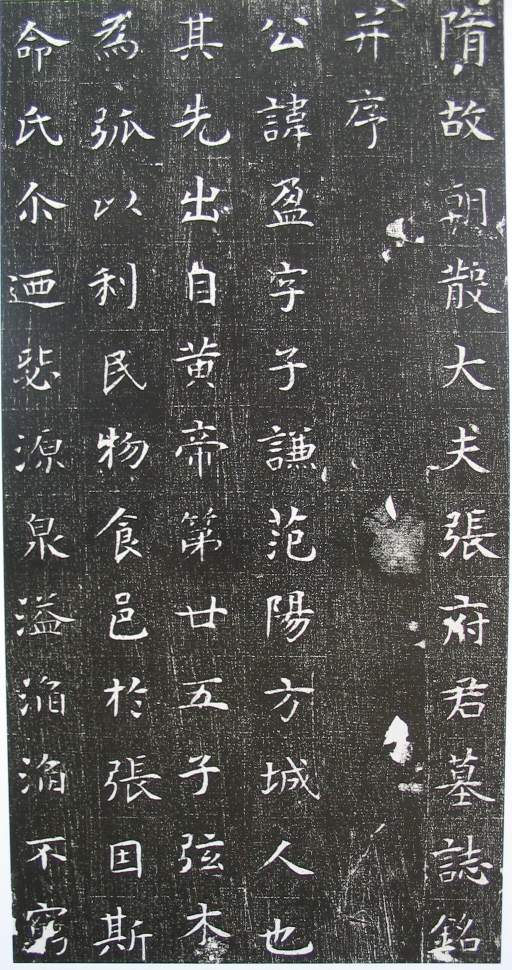 隋故朝散大夫張府君墓誌銘
并序
公諱盈字子謙范陽方城人也
其先出自黄帝第廿五子弦木
為弧以利民物食邑於張因斯
命氏尒迺毖源泉溢滔滔不窮